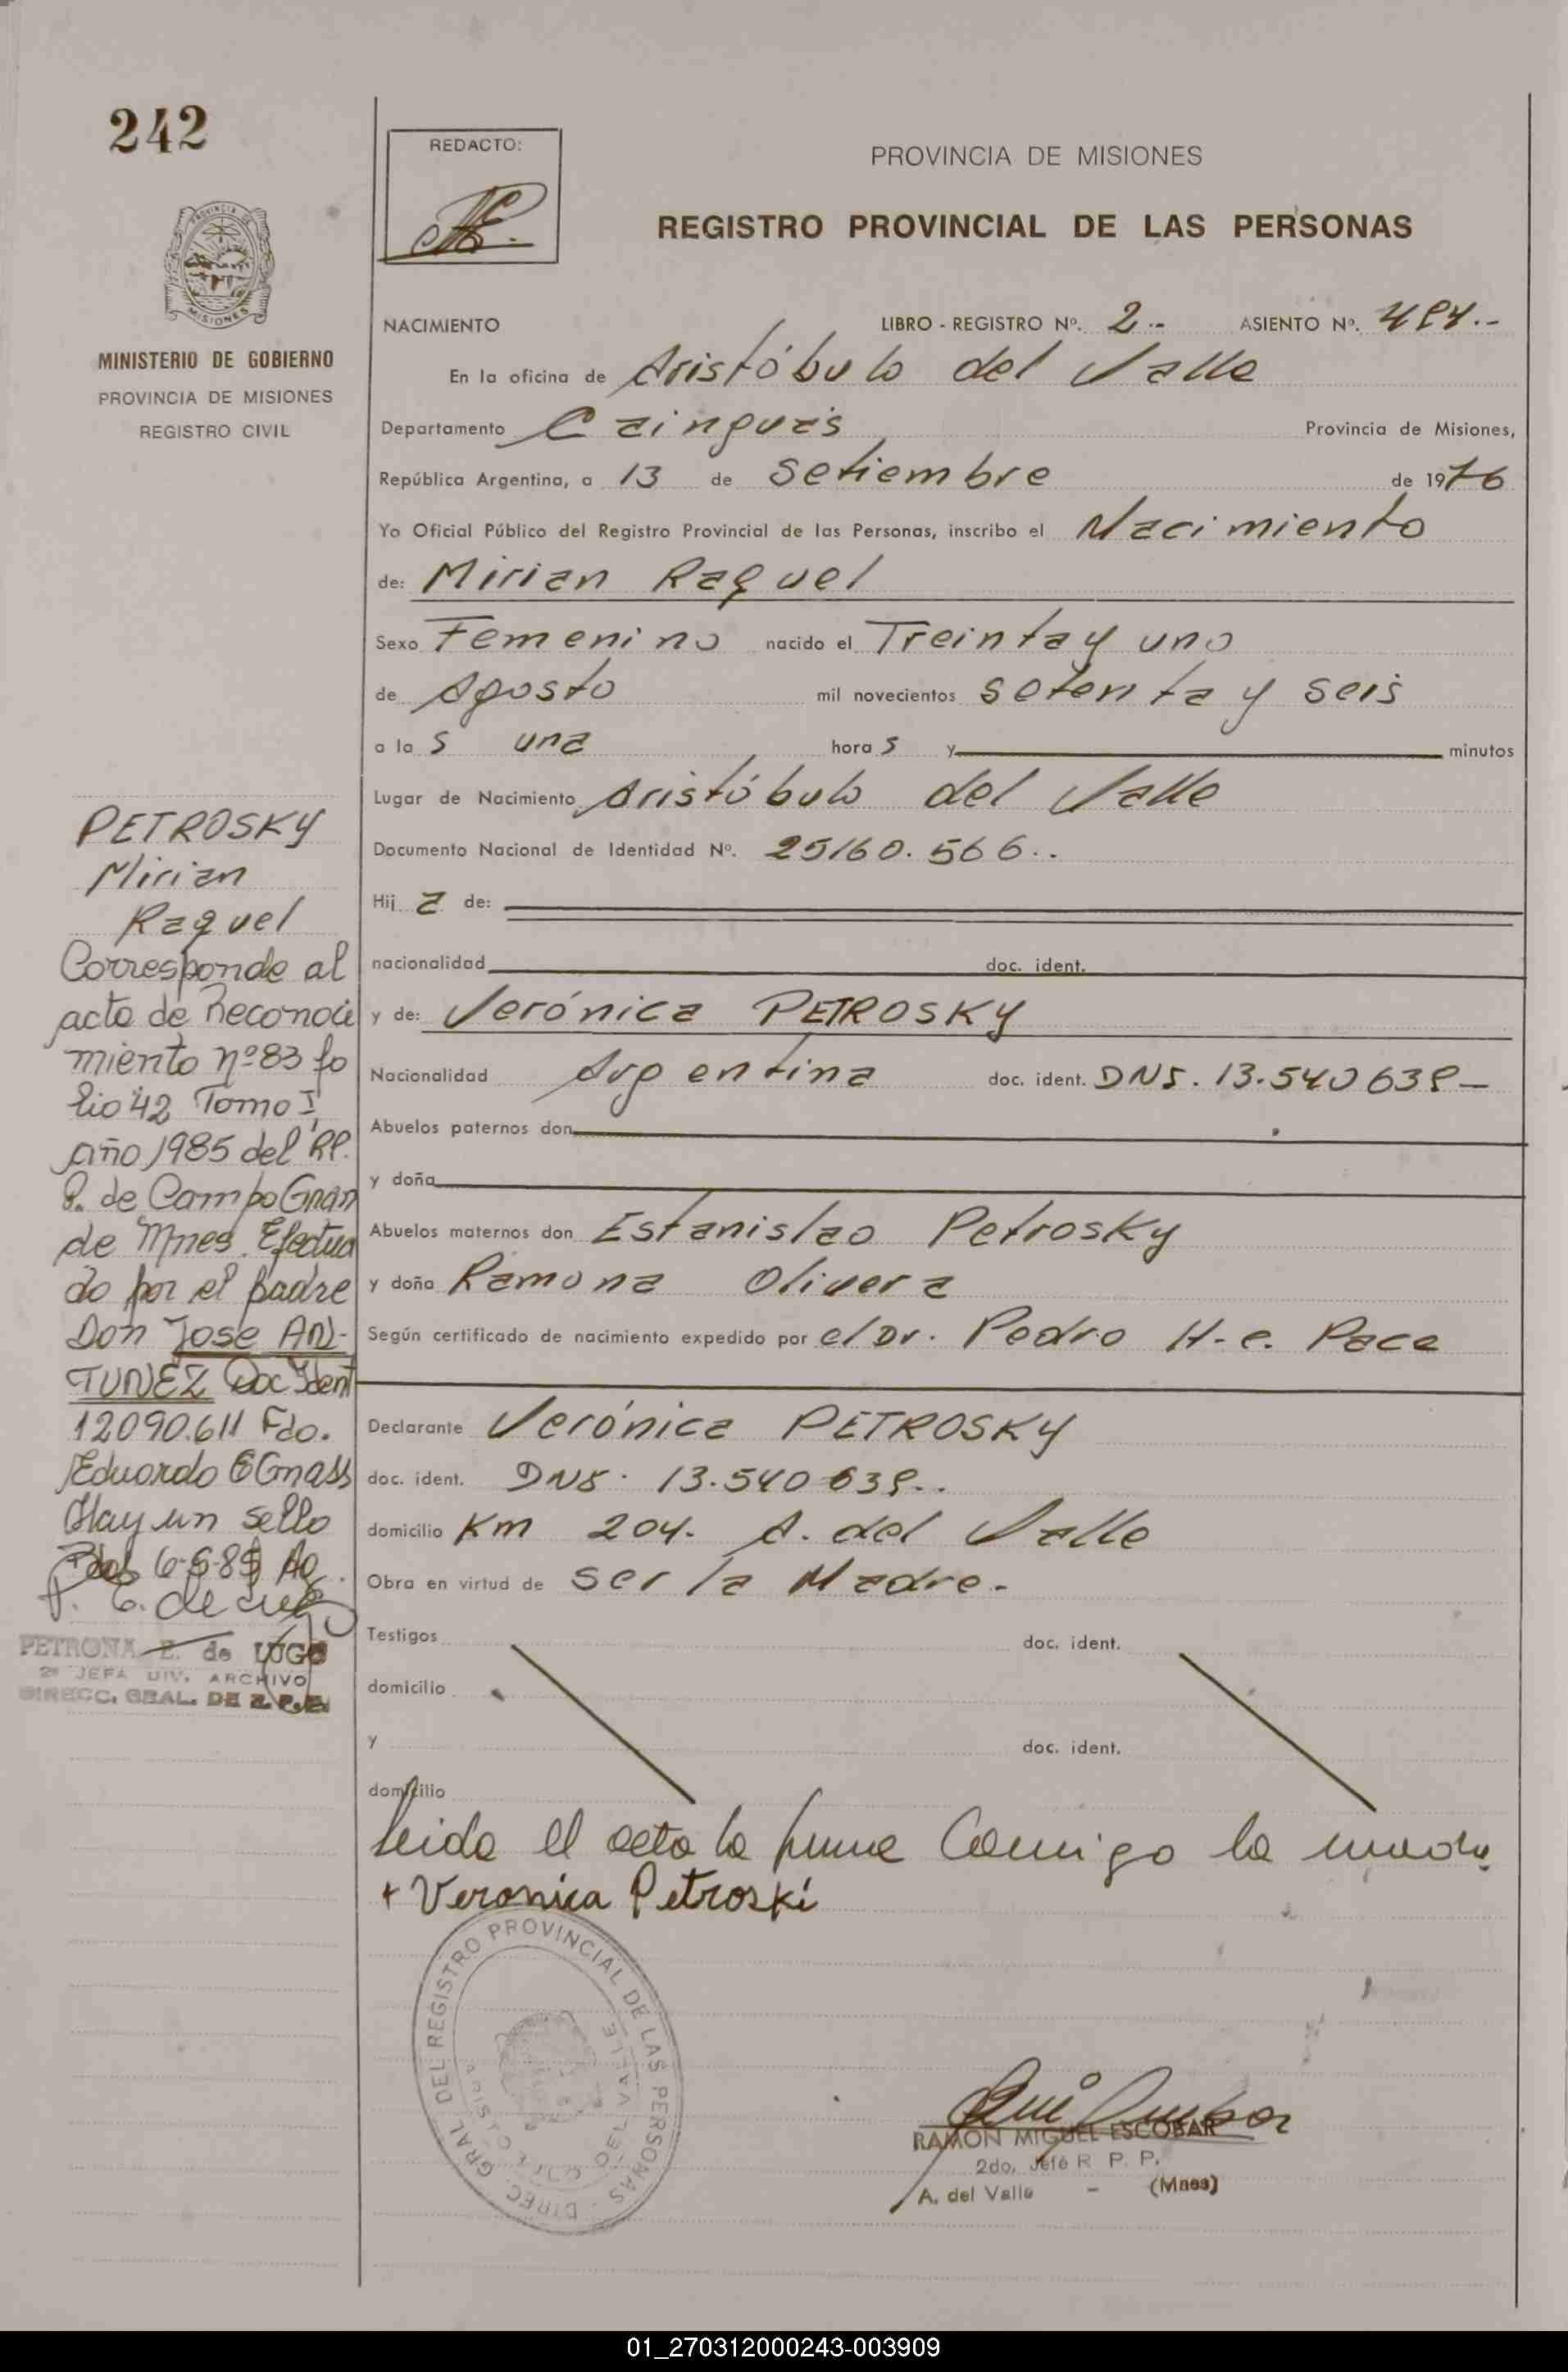 242
REDACTO:
PROVINCIA DE MISIONES
REGISTRO PROVINCIAL DE LAS PERSONAS
PROVINCIA DE
MISIONES
MINISTERIO DE GOBIERNO
PROVINCIA DE MISIONES
REGISTRO CIVIL
NACIMIENTO LIBRO - REGISTRO Nº. 2.- ASIENTO Nº.
En la oficina de Aristóbulo del Valle
Departamento Cainguás Provincia de Misiones,
República Argentina, a 13 de Setiembre de 1976
Yo Oficial Público del Registro Provincial de las Personas, inscribo el Nacimiento
de: Mirian Raquel
Sexo Femenino nacido el Treinta y uno
de Agosto mil novecientos setenta y seis
a la s una hora s y minutos
Lugar de Nacimiento Aristóbulo del Valle
Documento Nacional de Identidad Nº. 25160.566..
Hij a de:
nacionalidad doc. ident.
y de: Verónica PETROSKY
Nacionalidad Argentina doc. ident.
Abuelos paternos don
y doña
Abuelos maternos don Estanislao Petrosky
y doña Ramona Olivera
Según certificado de nacimiento expedido por el Dr. Pedro H. Pace
Declarante Verónica PETROSKY
doc. ident.
domicilio Km 204. A. del Valle
Obra en virtud de ser la Madre.-
Testigos doc. ident.
domicilio
y doc. ident.
domicilio
leida el acta la firma Comigo la madre
+ Veronica Petroski
PETROSKY
Mirian
Raquel
Corresponde al
acta de Reconoci
miento nº 83 fo
lio 42 Tomo I
año 1985 del RP.
P. de Campo Gran
de Mnes. Efectua
do por el padre
Don Jose AN-
TUNEZ Doc Ident
12090.611 Fdo.
Eduardo Gnass
Hay un sello
PETRONA E. de LUGO
2ª JEFA DIV. ARCHIVO
DIRECC. GRAL. DE R. P. P.
DIREC. GRAL DEL REGISTRO PROVINCIAL DE LAS PERSONAS
ARISTOBULO DEL VALLE
RAMON MIGUEL ESCOBAR
2do. Jefe R P. P.
A. del Valle - (Mnes)
01_270312000243-003909